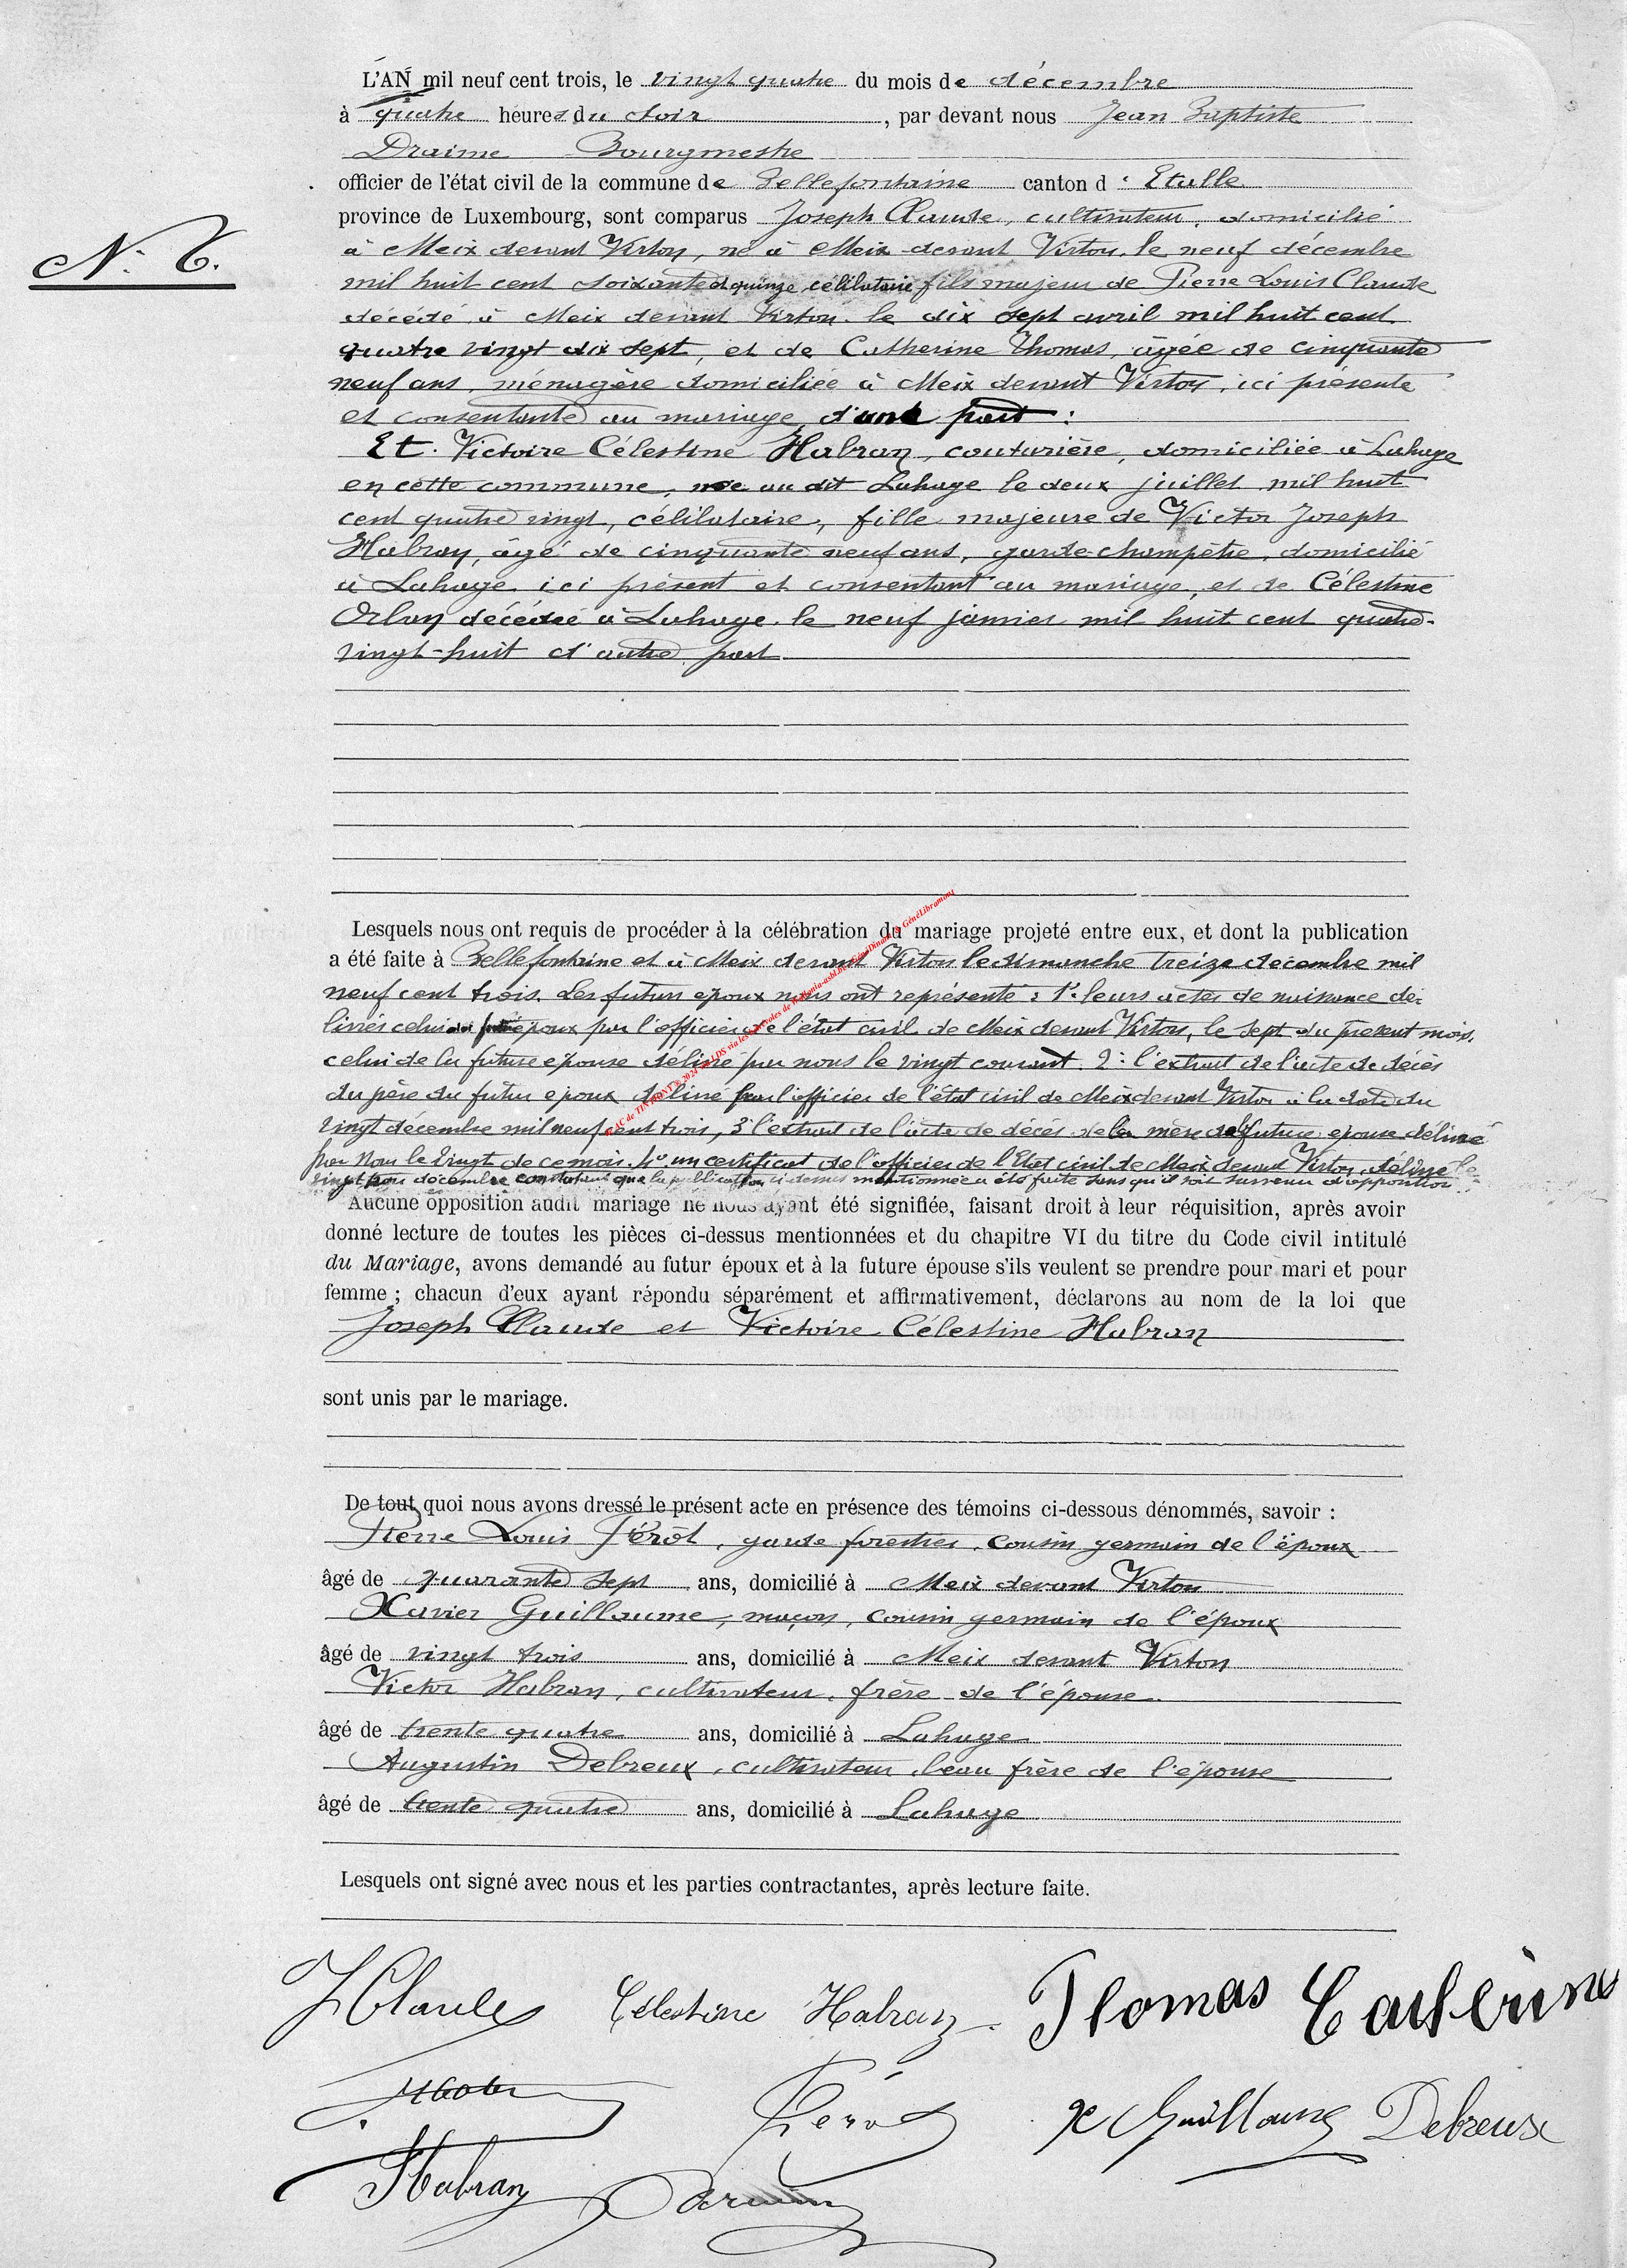 L'AN mil neuf cent trois, le vingt quatre du mois de décembre
à quatre heures du soir, par devant nous Jean Baptiste
Draime Bourgmestre
officier de l'état civil de la commune de Bellefontaine canton d'Etalle
N.° 6.
province de Luxembourg, sont comparus Joseph Claude, cultivateur, domicilié
à Meix devant Virton, né à Meix devant Virton, le neuf décembre
mil huit cent soixante et quinze, célibataire fils majeur de Pierre Louis Claude
décédé à Meix devant Virton le dix sept avril mil huit cent
quatre vingt dix sept, et de Catherine Thomas, âgée de cinquante
neuf ans, ménagère domiciliée à Meix devant Virton, ici présente
et consentante au mariage d'une part :
Et. Victoire Célestine Habran, couturière, domiciliée à Lahage
en cette commune, née au dit Lahage le deux juillet mil huit
cent quatre vingt, célibataire, fille majeure de Victor Joseph
Habran, âgé de cinquante neuf ans, garde-champêtre, domicilié
à Lahage ici présent et consentant au mariage, et de Célestine
Orban décédée à Lahage le neuf janvier mil huit cent quatre-
vingt-huit d'autre part
Lesquels nous ont requis de procéder à la célébration du mariage projeté entre eux, et dont la publication
a été faite à Bellefontaine et à Meix devant Virton le dimanche treize décembre mil
neuf cent trois. Les futurs époux nous ont représenté : 1° leurs actes de naissance dé-
livrés celui du époux par l'officier de l'état civil de Meix devant Virton, le sept du présent mois,
celui de la future épouse délivré par nous le vingt courant. 2° l'extrait de l'acte de décès
du père du futur époux délivré par l'officier de l'état civil de Meix devant Virton à la date du
vingt décembre mil neuf cent trois, 3° l'extrait de l'acte de décès de la mère de future épouse délivré
par nous le vingt de ce mois. 4° un certificat de l'officier de l'Etat civil de Meix devant Virton, délivré le
vingt décembre constatant que la publication ci dessus mentionnée a été faite sans qu'il soit survenu d'opposition
Aucune opposition audit mariage ne nous ayant été signifiée, faisant droit à leur réquisition, après avoir
donné lecture de toutes les pièces ci-dessus mentionnées et du chapitre VI du titre du Code civil intitulé
du Mariage, avons demandé au futur époux et à la future épouse s'ils veulent se prendre pour mari et pour
femme ; chacun d'eux ayant répondu séparément et affirmativement, déclarons au nom de la loi que
Joseph Claude et Victoire Célestine Habran
sont unis par le mariage.
De tout quoi nous avons dressé le présent acte en présence des témoins ci-dessous dénommés, savoir :
Pierre Louis Pérot, garde forestier, cousin germain de l'époux
âgé de quarante sept ans, domicilié à Meix devant Virton
Xavier Guillaume, maçon, cousin germain de l'époux
âgé de vingt trois ans, domicilié à Meix devant Virton
Victor Habran, cultivateur, frère de l'épouse
âgé de trente quatre ans, domicilié à Lahage
Augustin Debreux, cultivateur, beau frère de l'épouse
âgé de trente quatre ans, domicilié à Lahage
Lesquels ont signé avec nous et les parties contractantes, après lecture faite.
J Claude Célestine Habran Thomas Catherine
Pérot X Guillaume Debreux
Habran